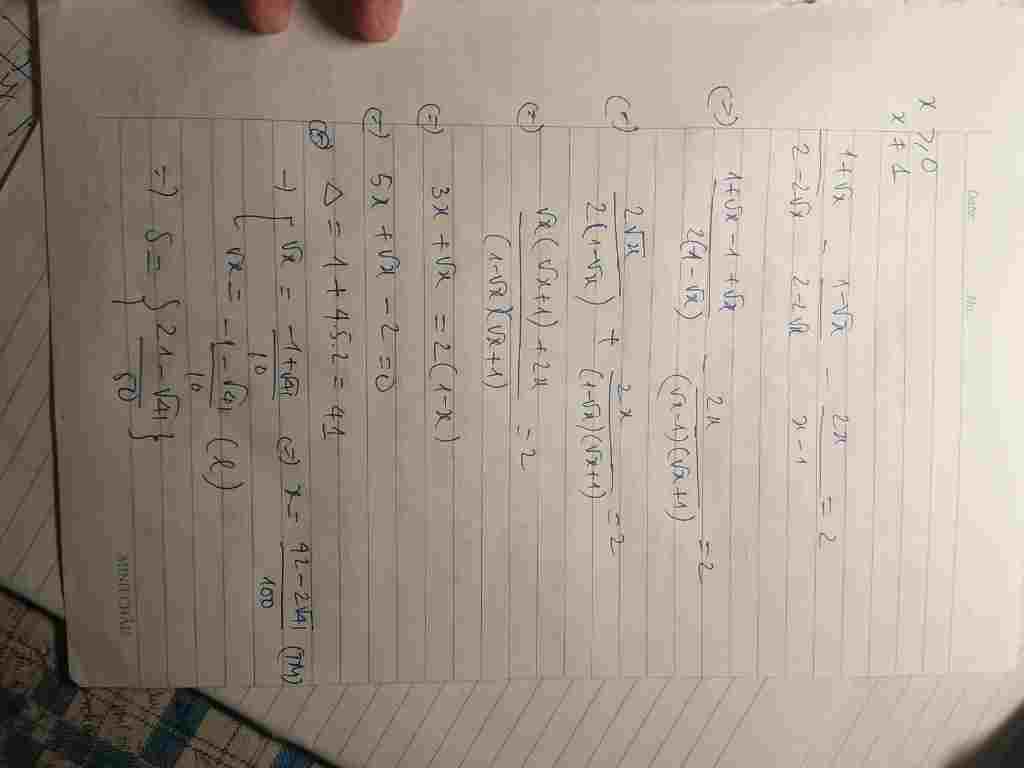 Date No
x ⩾ 0
x ≠ 1
1+√x / 2-2√x - 1-√x / 2+√x - 2x / x-1 = 2
(=) 1+√x-1+√x / 2(1-√x) - 2x / (√x-1)(√x+1) = 2
(=) 2√x / 2(1-√x) + 2x / (1-√x)(√x+1) = 2
(=) √x(√x+1)+2x / (1-√x)(√x+1) = 2
(=) 3x+√x = 2(1-x)
(=) 5x+√x-2=0
Δ = 1+4.5.2 = 41
-) [ √x = -1+√41 / 10 (=) x = 42-2√41 / 100 (TM)
√x = -1-√41 / 10 (l)
=) S = { 21-√41 / 50 }
MINH CHÂU